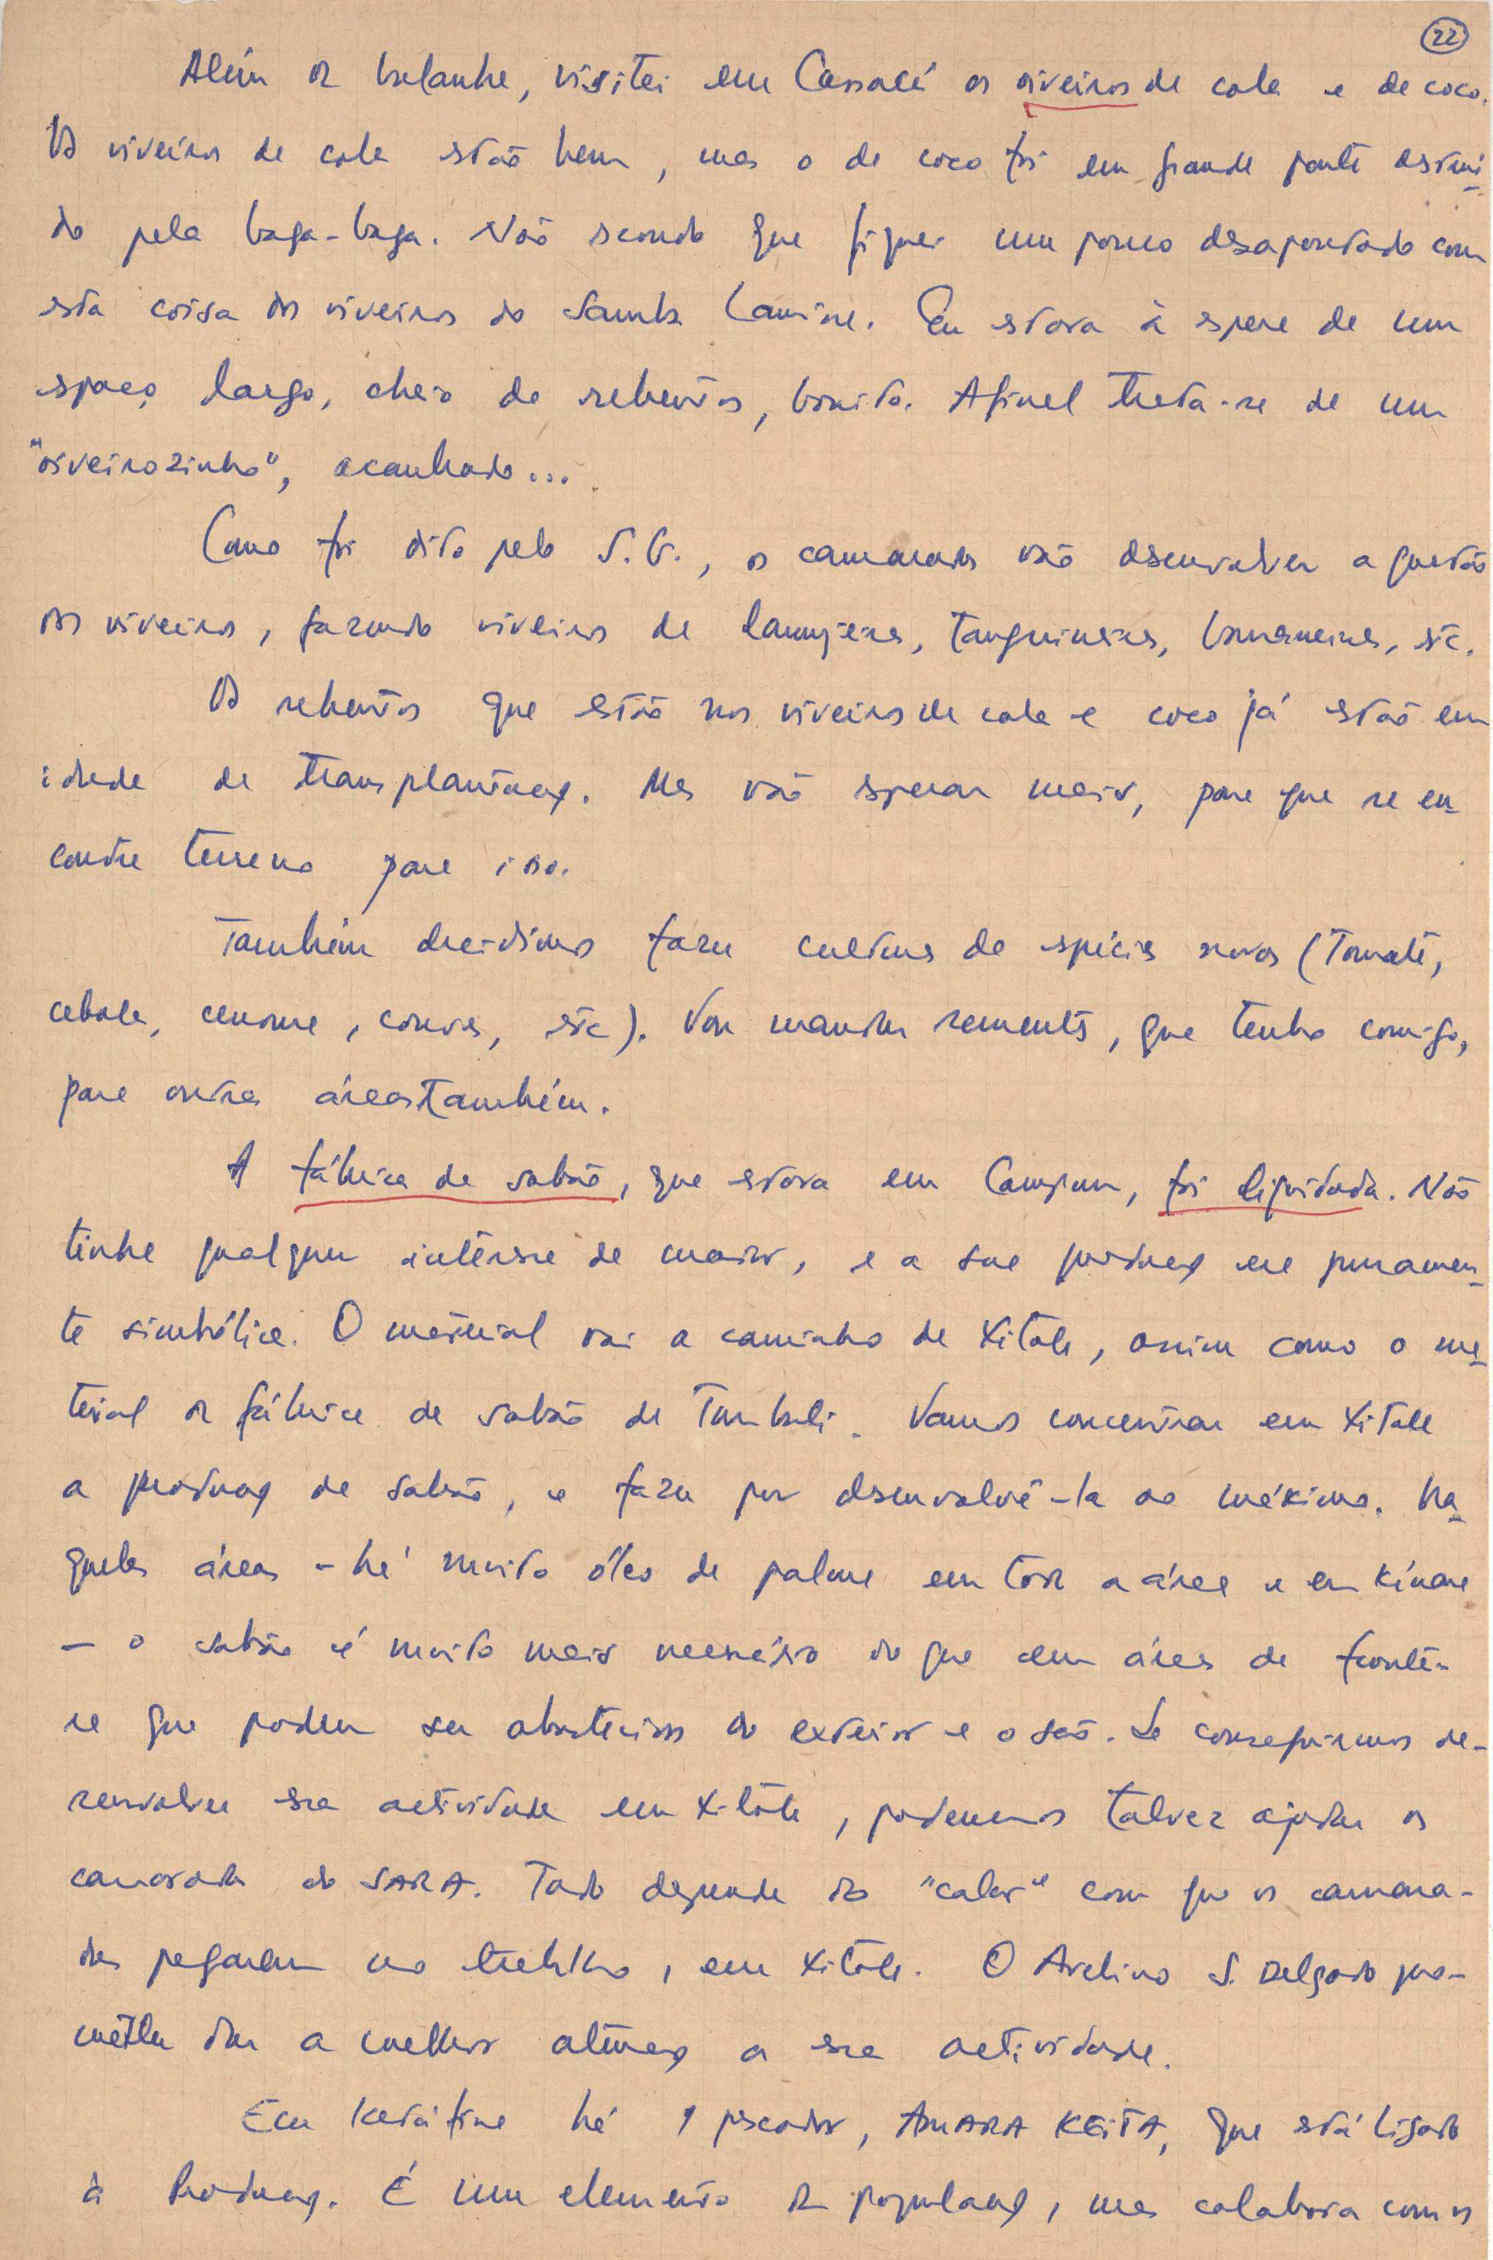 22
Além da bolanha, visitei em Cassacá os viveiros de cola e de coco.
Os viveiros de cola estão bem, mas o de coco foi em grande parte destruí-
do pela baga-baga. Não escondo que fiquei um pouco desapontado com
esta coisa dos viveiros do Samba Lamine. Eu estava à espera de um
espaço largo, cheio de rebentos, bonito. Afinal trata-se de um
"viveirozinho", acanhado...
Como foi dito pelo S.G., os camaradas vão desenvolver a questão
dos viveiros, fazendo viveiros de laranjeiras, tangerineiras, bananeiras, etc.
Os rebentos que estão nos viveiros de cola e coco já estão em
idade de transplantação. Mas vão esperar mais, para que se en-
contre terreno para isso.
Também decidimos fazer culturas de espécies novas (tomate,
cebola, cenoura, couves, etc). Vou mandar sementes, que tenho comigo,
para outras áreas também.
A fábrica de sabão, que estava em Campum, foi liquidada. Não
tinha qualquer interesse de maior, e a sua produção era puramen-
te simbólica. O material vai a caminho de Xitole, assim como o ma-
terial da fábrica de sabão de Tombali. Vamos concentrar em Xitole
a produção de sabão, e fazer por desenvolvê-la ao máximo. Na-
quelas áreas - há muito óleo de palma em toda a área e em Kínara
- o sabão é muito mais necessário do que em áreas de frontei-
ra que podem ser abastecidas do exterior e o são. Se conseguirmos de-
senvolver essa actividade em Xitole, poderemos talvez ajudar os
camaradas do SARA. Tudo depende do "calor" com que os camara-
das pegarem no trabalho, em Xitole. O Avelino S. Delgado pro-
meteu dar a melhor atenção a essa actividade.
Em Katáfine há 1 pescador, AMARA KEITA, que está ligado
à Produção. É um elemento da população, mas colabora com os